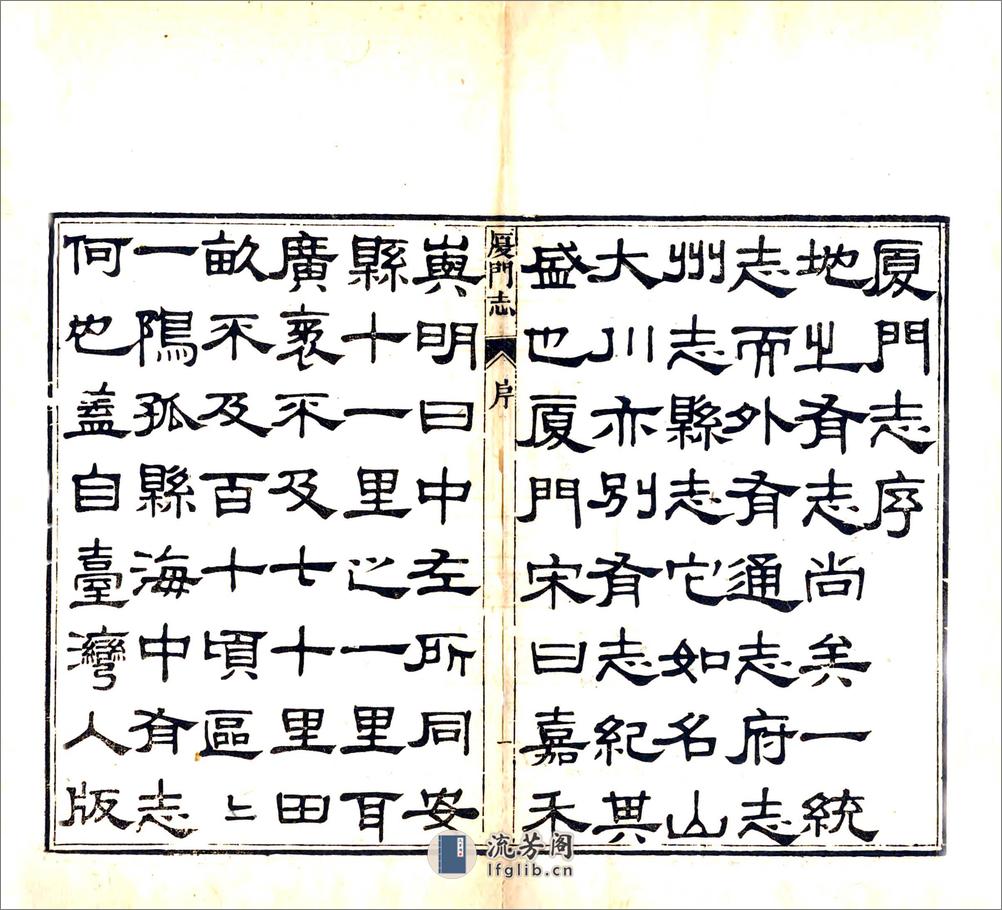 厦門志序
地㞢有志尚矣一統
志而外有通志府志
州志縣志它如名山
大川亦別有志紀其
盛也厦門宋曰嘉禾
厦門志
序
一
嶼明曰中左所同安
縣十一里之一里耳
廣袤不及七十里田
畝不及百十頃區〻
一隅孤縣海中有志
何也蓋自臺灣人版
流芳阁
lfglib.cn